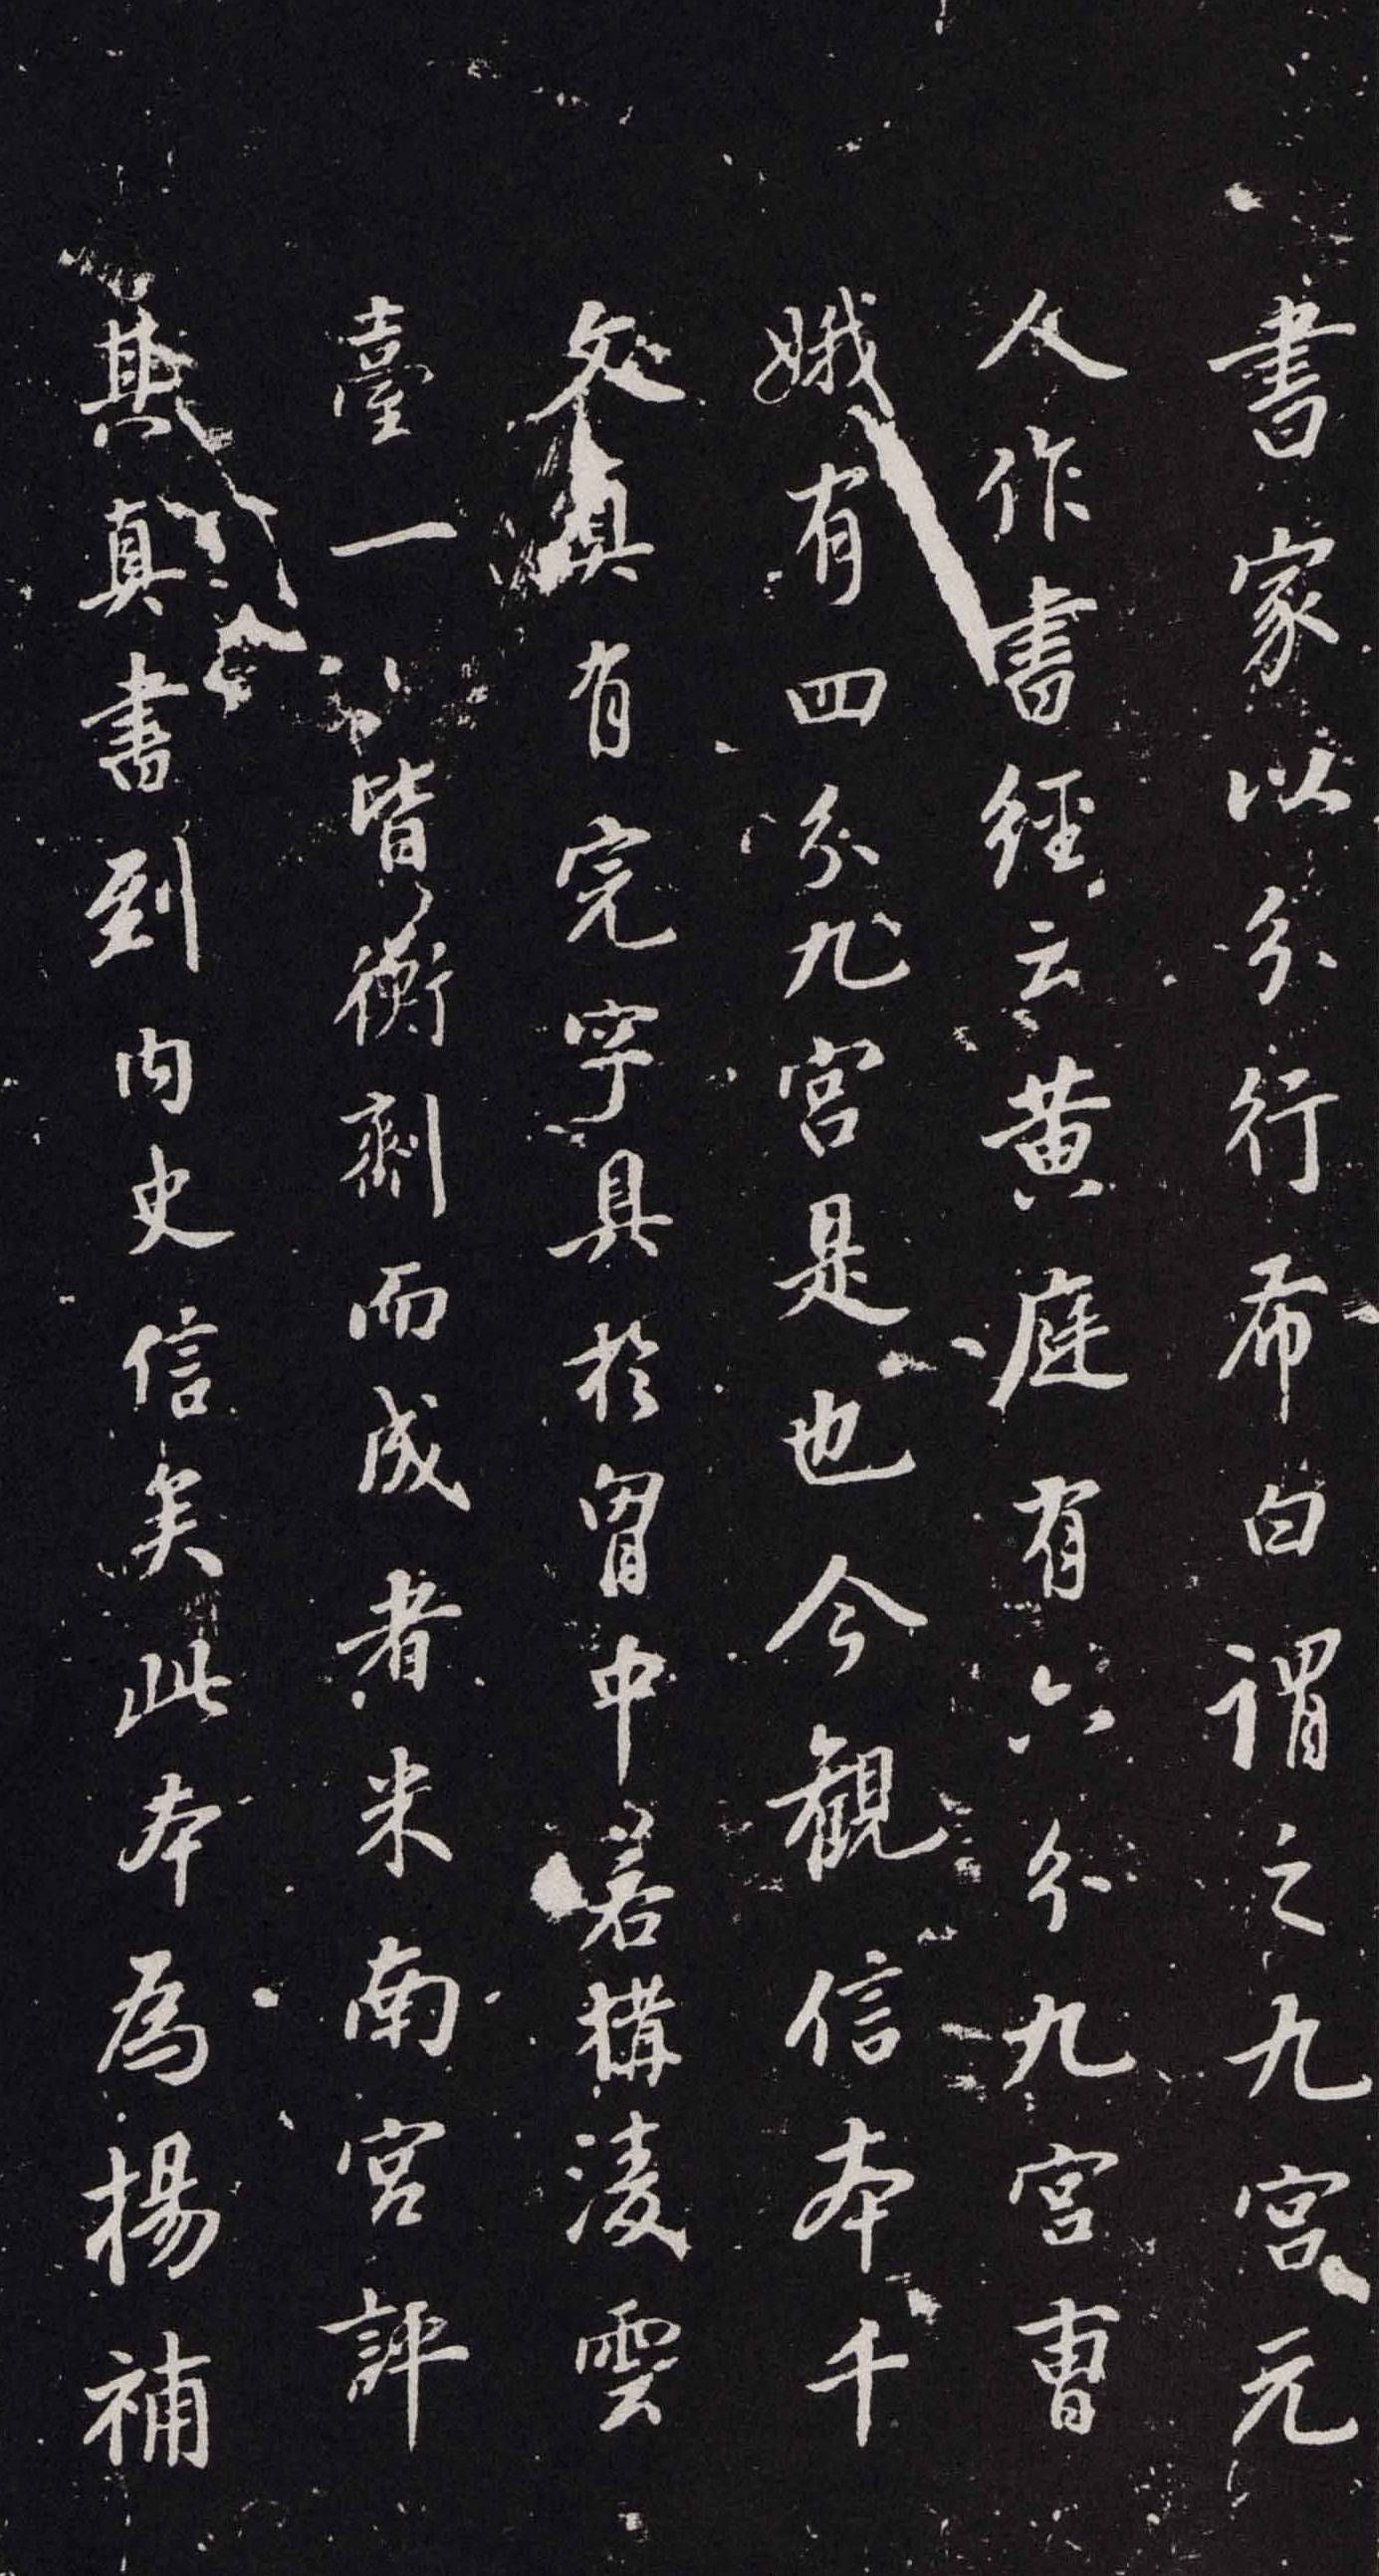 書家以分行希白謂之九宮元
人作書經云黄庭有六分九宮曹
娥有四分九宮是也今觀信本千
文真有完字具於胷中若構凌雲
臺一一皆衡劑而成者米南宮評
其真書到内史信矣此本為楊補